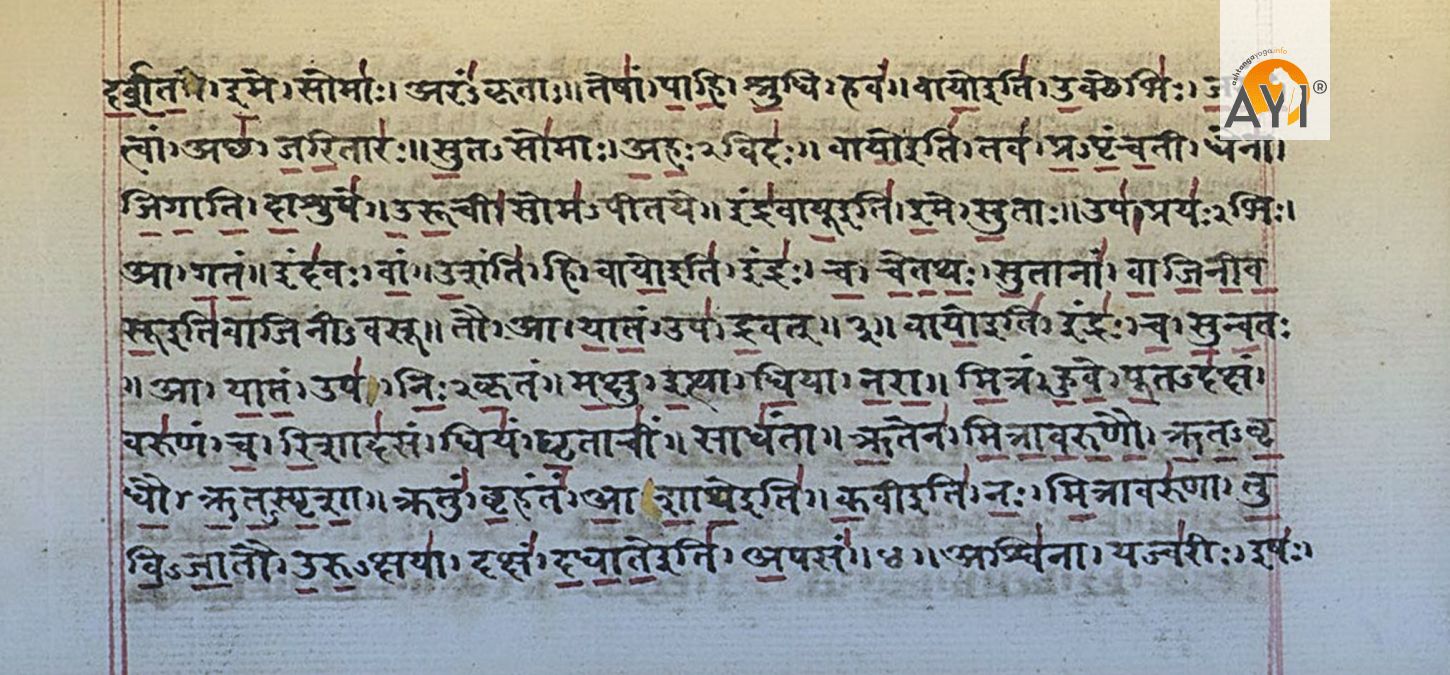 ashtangayoga.info
AYI®
इमे। सोमाः। अरंऽकृताः॥ तेषां। पाहि। श्रुधि। हवं॥ वायोइति। उक्थेभिः।
त्वां। अच्छ। जरितारः॥ सुतऽसोमाः। अहःऽविदः॥ वायोइति। तव। प्रऽपृंचती। धेना।
जिगाति। दाशुषे॥ उरूची। सोमऽपीतये॥ इंद्रवायूइति। इमे। सुताः॥ उप। प्रयःऽभिः।
आ। गतं॥ इंदवः। वां॥ उशंति। हि। वायोइति। इंद्रः। च। चेतथः। सुतानां। वाजिनीव
सूइतिवाजिनीऽवसू॥ तौ। आ। यातं। उप। द्रवत्॥ ३॥ वायोइति। इंद्रः। च। सुन्वतः
। आ। यातं। उप। निःऽकृतं॥ मक्षु। इत्था। धिया। नरा॥ मित्रं। हुवे। पूतऽदक्षं।
वरुणं। च। रिशादसं। धियं। घृताचीं॥ साधंता॥ ऋतेन। मित्रावरुणौ। ऋतऽवृ
धौ। ऋतऽस्पृशा॥ क्रतुं। बृहंतं। आशाथेइति॥ कवीइति। नः। मित्रावरुणा। तु
विऽजातौ। उरुऽक्षया। दक्षं। दधातेइति। अपसं॥ ४॥ अश्विना। यज्वरीः। इषः।